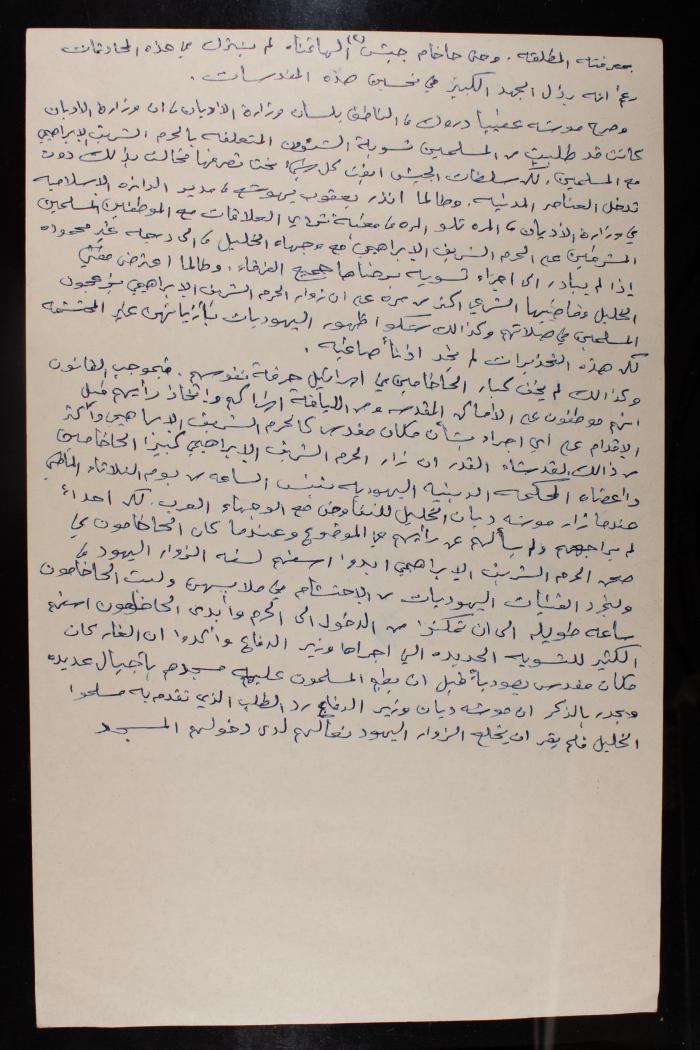 بمعرفته المطلقه. وحتى حاخام جيش (٢) الهاغناه لم يشترك في هذه المحادثات
رغم انه بذل الجهد الكبير في تحسين هذه المقدسات.
وصرح موشه عفيبا دروك، الناطق بلسان وزارة الأديان، ان وزارة الاديان
كانت قد طلبت من المسلمين تسوية الشؤون المتعلقه بالحرم الشريف الابراهيمي
مع المسلمين. لكن سلطات الجيش ابقت كل شيء تحت تصرفها فحالت بذلك دون
تدخل العناصر المدنيه. وطالما انذر يعقوب يهوشع، مدير الدائره الاسلاميه
في وزارة الأديان، المره تلو المره، مغبة تردي العلاقات مع الموظفين المسلمين
المشرفين على الحرم الشريف الابراهيمي، مع وجهاء الخليل، الى درجه غير محموده
إذا لم يبادر الى اجراء تسويه يرضاها جميع الفرقاء. وطالما اعترض مفتي
الخليل وقاضيها الشرعي اكثر من مره على ان زوار الحرم الشريف الابراهيمي يزعجون
المسلمين في صلاتهم وكذالك شكوا ظهور اليهوديات بأزيائهن غير المحتشمه
لكن هذه التحذيرات لم تجد اذناً صاغيه.
وكذالك لم يخف كبار الحاخامين في اسرائيل حرقة نفوسهم. فبموجب القانون
انهم موظفون على الأماكن المقدسه ومن اللياقة اشراكهم واتخاذ رأيهم قبل
الإقدام على أي اجراء بشأن مكان مقدس كالحرم الشريف الإبراهيمي وأكثر
من ذالك لقد شاء القدر ان زار الحرم الشريف الابراهيمي كبيرا الحاخامين
واعضاء المحكمه الدينيه اليهوديه بنفس الساعه من يوم الثلاثاء الماضي
عندما زار موشه ديان الخليل للتفاوض مع الوجهاء العرب. لكن احداً
لم يراجعهم ولم يسألهم عن رأيهم في الموضوع وعندما كان الحاخامون في
صحن الحرم الشريف الابراهيمي ابدوا اسفهم لسفه الزوار اليهود في
ولتجرد الفتيات اليهوديات من الإحتشام في ملابسهن ولبث الحاخامون
ساعه طويله الى ان تمكنوا من الدخول الى الحرم وأبدى الحاخامون اسفهم
الكثير للتسويه الجديده التي اجراها وزير الدفاع وأكدوا ان الغار كان
مكان مقدس يهودياً قبل ان يقيم المسلمون عليه مسجدهم بأجيال عديده
ويجدر بالذكر ان موشه ديان وزير الدفاع رد الطلب الذي تقدم به مسلموا
الخليل فلم يقر ان يخلع الزوار اليهود نعالهم لدى دخولهم المسجد